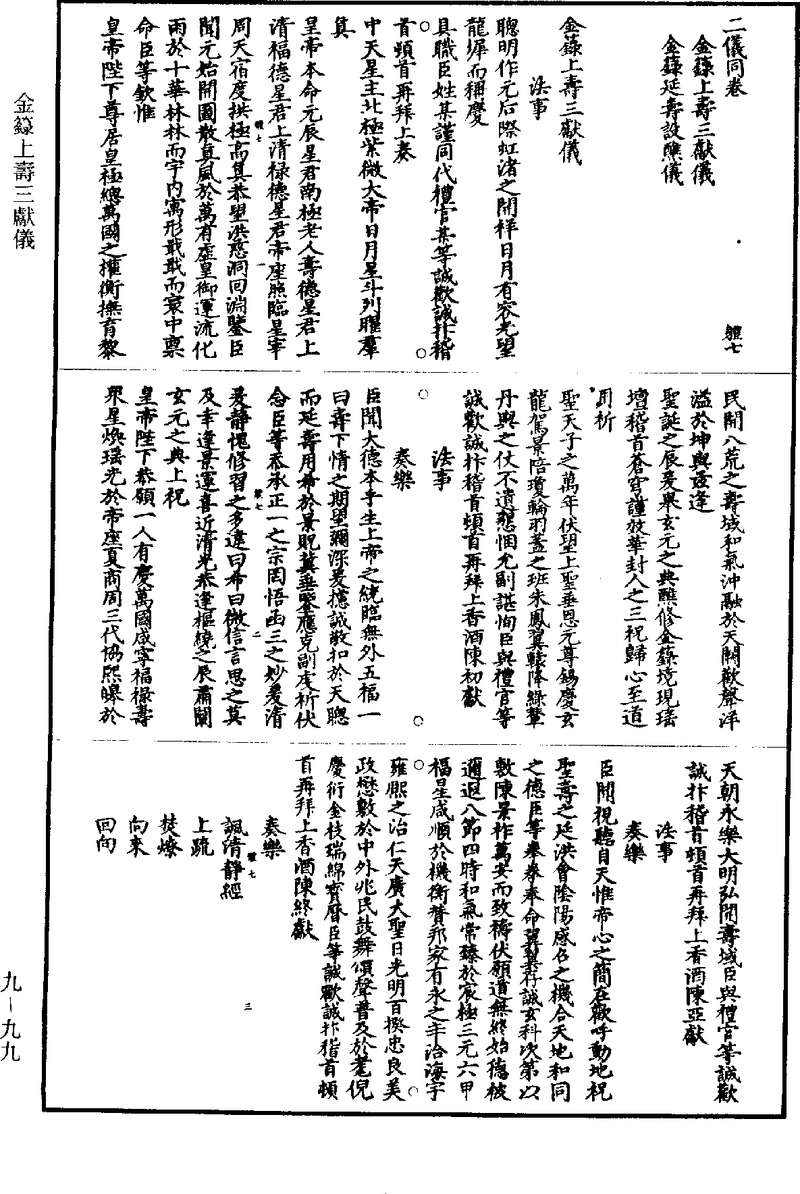 二儀同卷
金籙上壽三獻儀
金籙延壽設醮儀
體七
金籙上壽三獻儀
法事
聰明作元后際虹渚之開祥日月有容光望
龍墀而稱慶
具職臣姓某謹同代禮官某等誠歡誠抃稽
首頓首再拜上奏
中天星主北極紫微大帝日月星斗列曜羣
真
皇帝本命元辰星君南極老人壽德星君上
清福德星君上清祿德星君帝座照臨星宰
周天宿度拱極高真恭望洪慈洞回淵鑒臣
聞元始開圖散真風於萬有虛皇御運流化
雨於十華林林而宇內寓形戢戢而寰中稟
命臣等欽惟
皇帝陛下尊居皇極總萬國之權衡撫育黎
民開八荒之壽域和氣沖融於天闕歡聲洋
溢於坤輿茲逢
聖誕之辰爰舉玄元之典醮修金籙境現瑤
壇稽首蒼穹謹效華封人之三祝歸心至道
用祈
聖天子之萬年伏望上聖垂恩元尊錫慶玄
龍駕景陪瓊輪羽蓋之班朱鳳翼轅降綠輦
丹輿之仗不遺懇悃允副諶恂臣與禮官等
誠歡誠抃稽首頓首再拜上香酒陳初獻
法事
奏樂
臣聞大德本乎生上帝之統臨無外五福一
曰壽下情之期望彌深爰攄誠敬扣於天聰
而延壽用希於景貺冀垂鑒應克副虔祈伏
念臣等忝承正一之宗罔悟函三之妙爰清
爰靜愧修習之多違曰希曰微信言思之莫
及幸逢景運喜近清光恭逢樞繞之辰肅闡
玄元之典上祝
皇帝陛下恭願一人有慶萬國咸寧福祿壽
眾星煥瑤光於帝座夏商周三代協熙皞於
天朝永樂大明弘開壽域臣與禮官等誠歡
誠抃稽首頓首再拜上香酒陳亞獻
法事
奏樂
臣聞視聽自天惟帝心之簡在歡呼動地祝
聖壽之延洪會陰陽感召之機合天地和同
之德臣等拳拳奉命翼翼存誠玄科次第以
敷陳景祚萬安而致禱伏願道無終始德被
邇遐八節四時和氣常臻於宸極三元六甲
福星咸順於機衡贊邦家有永之年洽海宇
雍熙之治仁天廣大聖日光明百揆忠良美
政懋敷於中外兆民鼓舞頌聲普及於耄倪
慶衍金枝瑞綿寶曆臣等誠歡誠抃稽首頓
首再拜上香酒陳終獻
奏樂
諷清靜經
上疏
焚燎
向來
回向
體七
一
體七
二
體七
三
金籙上壽三獻儀
九—九九